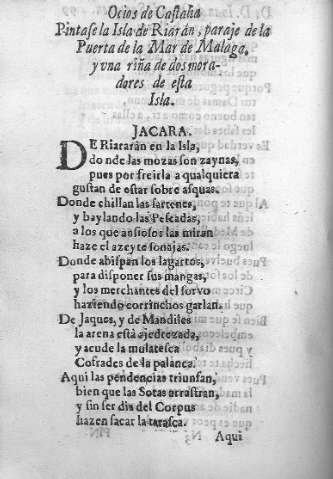 Ocios de Castalia
Pintase la Isla de Riarán, paraje de la
Puerta de la Mar de Malaga,
y una riña de dos mora-
dores de esta
Isla.
JACARA.
DE Riararán en la Isla,
do nde las mozas son zaynas,
pues por freirla a qualquiera
gustan de estar sobre asquas.
Donde chillan las sartenes,
y baylando las Pescadas,
a los que ansiosos las miran
haze el azeyte sonajas.
Donde abispan los lagartos,
para disponer sus mangas,
y los merchantes del sorvo
haziendo corrinchos garlan.
De Jaques, y de Mandiles
la arena està ajedrezada,
y acude la mulatesca
Cofrades de la palanca.
Aqui las pendencias triunfan,
bien que las Sotas arrastran,
y sin ser dia del Corpus
hazen sacar la tarasca.
N3 Aqui